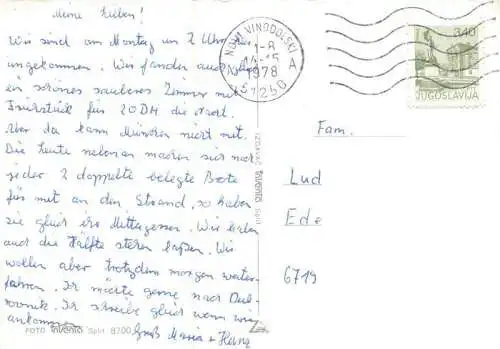 Meine Lieben!
Wir sind am Montag um 2 Uhr
angekommen. Wir fanden auch gleich
ein schönes sauberes Zimmer mit
Frühstück für 20 DM die
Aber da kann München nicht mit.
Die Leute nebenan machen sich
jeder 2 doppelte belegte Brote
für mit an den Strand, so haben
sie gleich ihr Mittagessen. Wir haben
auch die Hälfte stehen laßen. Wir
wollen aber trotzdem morgen weiter-
fahren. Ich möchte gerne nach Dub-
rovnik. Ich schreibe gleich wenn wir
ankommen
Gruß Maria + Heinz
FOTO Split 8700
IZDAVAČ Split
NOVI VINODOLSKI
1-8
14-15
1978
A
51250
3,40
JUGOSLAVIJA
Fam.
Lud
Ede
6719